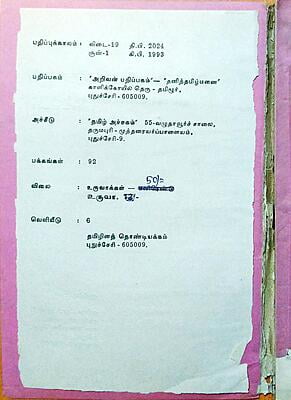 பதிப்புக்காலம் : விடை-19 தி.பி. 2024
சூன்-1 கி.பி. 1993
பதிப்பகம் : "அறிவன் பதிப்பகம்"— "தனித்தமிழ்மனை"
காளிக்கோயில் தெரு - தமிழூர்,
புதுச்சேரி - 605009.
அச்சீடு : "தமிழ் அச்சகம்" 55-வழுதாவூர்ச் சாலை,
தருமபுரி - முத்தரையர்ப்பாளையம்,
புதுச்சேரி-9.
பக்கங்கள் : 92
50/-
விலை : உருவாக்கள் —
உருவா.
வெளியீடு : 6
தமிழினத் தொண்டியக்கம்
புதுச்சேரி - 605009.